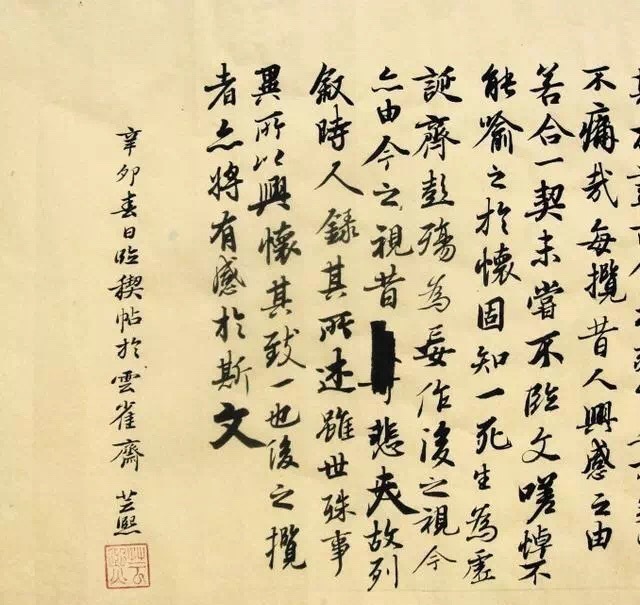 不痛哉每攬昔人興感之由
若合一契未嘗不臨文嗟悼不
能喻之於懷固知一死生為虛
誕齊彭殤為妄作後之視今
亦由今之視昔悲夫故列
敘時人錄其所述雖世殊事
異所以興懷其致一也後之攬
者亦將有感於斯文
辛卯春日臨稧帖於雲雀齋 芸熙